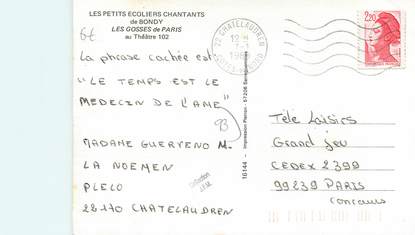 LES PETITS ECOLIERS CHANTANTS
de BONDY
LES GOSSES de PARIS
au Théâtre 102
6€
La phrase cachée est
"LE TEMPS EST LE
MEDECIN DE L'AME"
93
MADAME GUERVENO M.
LA NOEMEN
PLELO
22170 CHATELAUDREN
Collection
16144 - Impression Perron - 57206 Sarreguemines
22 CHATELAUDREN
2,20
Télé Loisirs
Grand Jeu
CEDEX 2399
99239 PARIS
CONCOURS